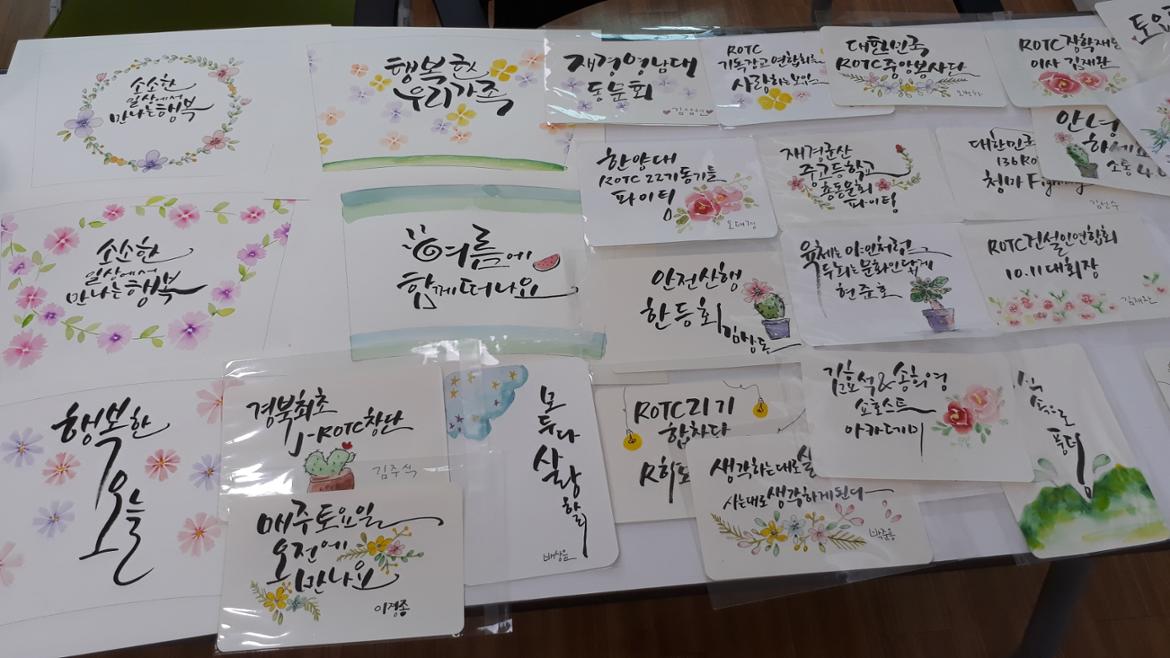 소소한
일상에서
만나는 행복
행복한
우리가족
재경영남대
동문회
ROTC
사랑하는
대한민국
ROTC중앙봉사단
ROTC장학재단
이사 김제완
한양대
ROTC 22기 동기들
파이팅
오태경
재경군산
중고등학교
총동문회
파이팅
대한민국
청마 Fighting
김선수
안녕
하세요
소통
소소한
일상에서
만나는 행복
여름에
함께 떠나요
안전산행
한등회
김상도
육체는 야인처럼
두뇌는 문화인답게
현준호
ROTC건설인연합회
10.11대회장
김제완
행복한
오늘
경북최초
J-ROTC창단
김주석
매주토요일
오전에
만나요
이경종
모두 다 사랑하리
배상윤
ROTC21기
합창단
생각하는대로
사는대로 생각하게 된다
김효석&송희영
쇼호스트
아카데미